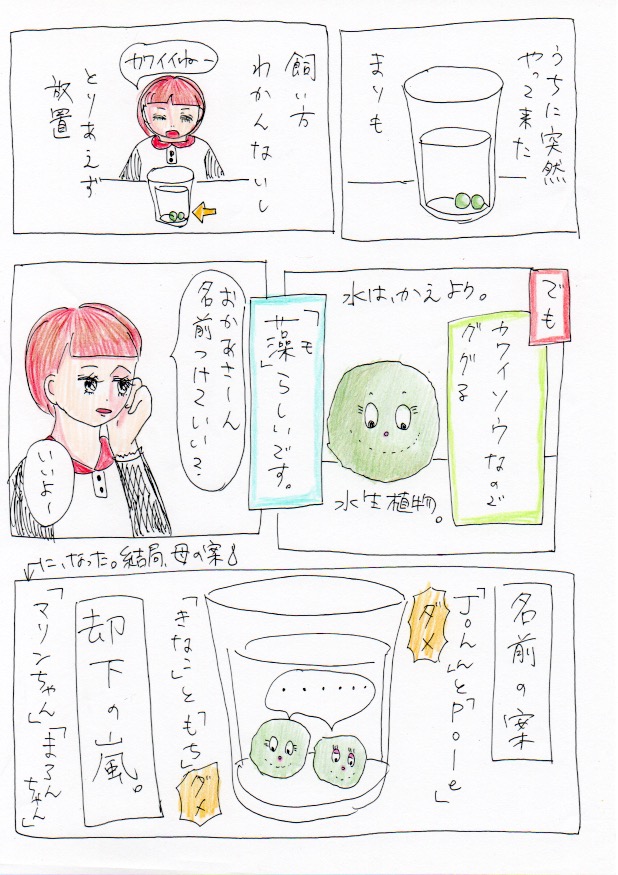 うちに突然
やって来た
まりも
飼い方
わかんないし
カワイイねー
とりあえず
放置
でも
カワイソウなので
ググる
水は、かえより。
水生植物。
「藻」らしいです。
モ
おかあさーん
名前つけていい?
いいよ〜
名前の案
「John」と「Pole」
ダメ
‥‥‥
「きなこ」と「もち」
ダメ
却下の嵐。
「マリンちゃん」「まろんちゃん」
に、なった。結局、母の案